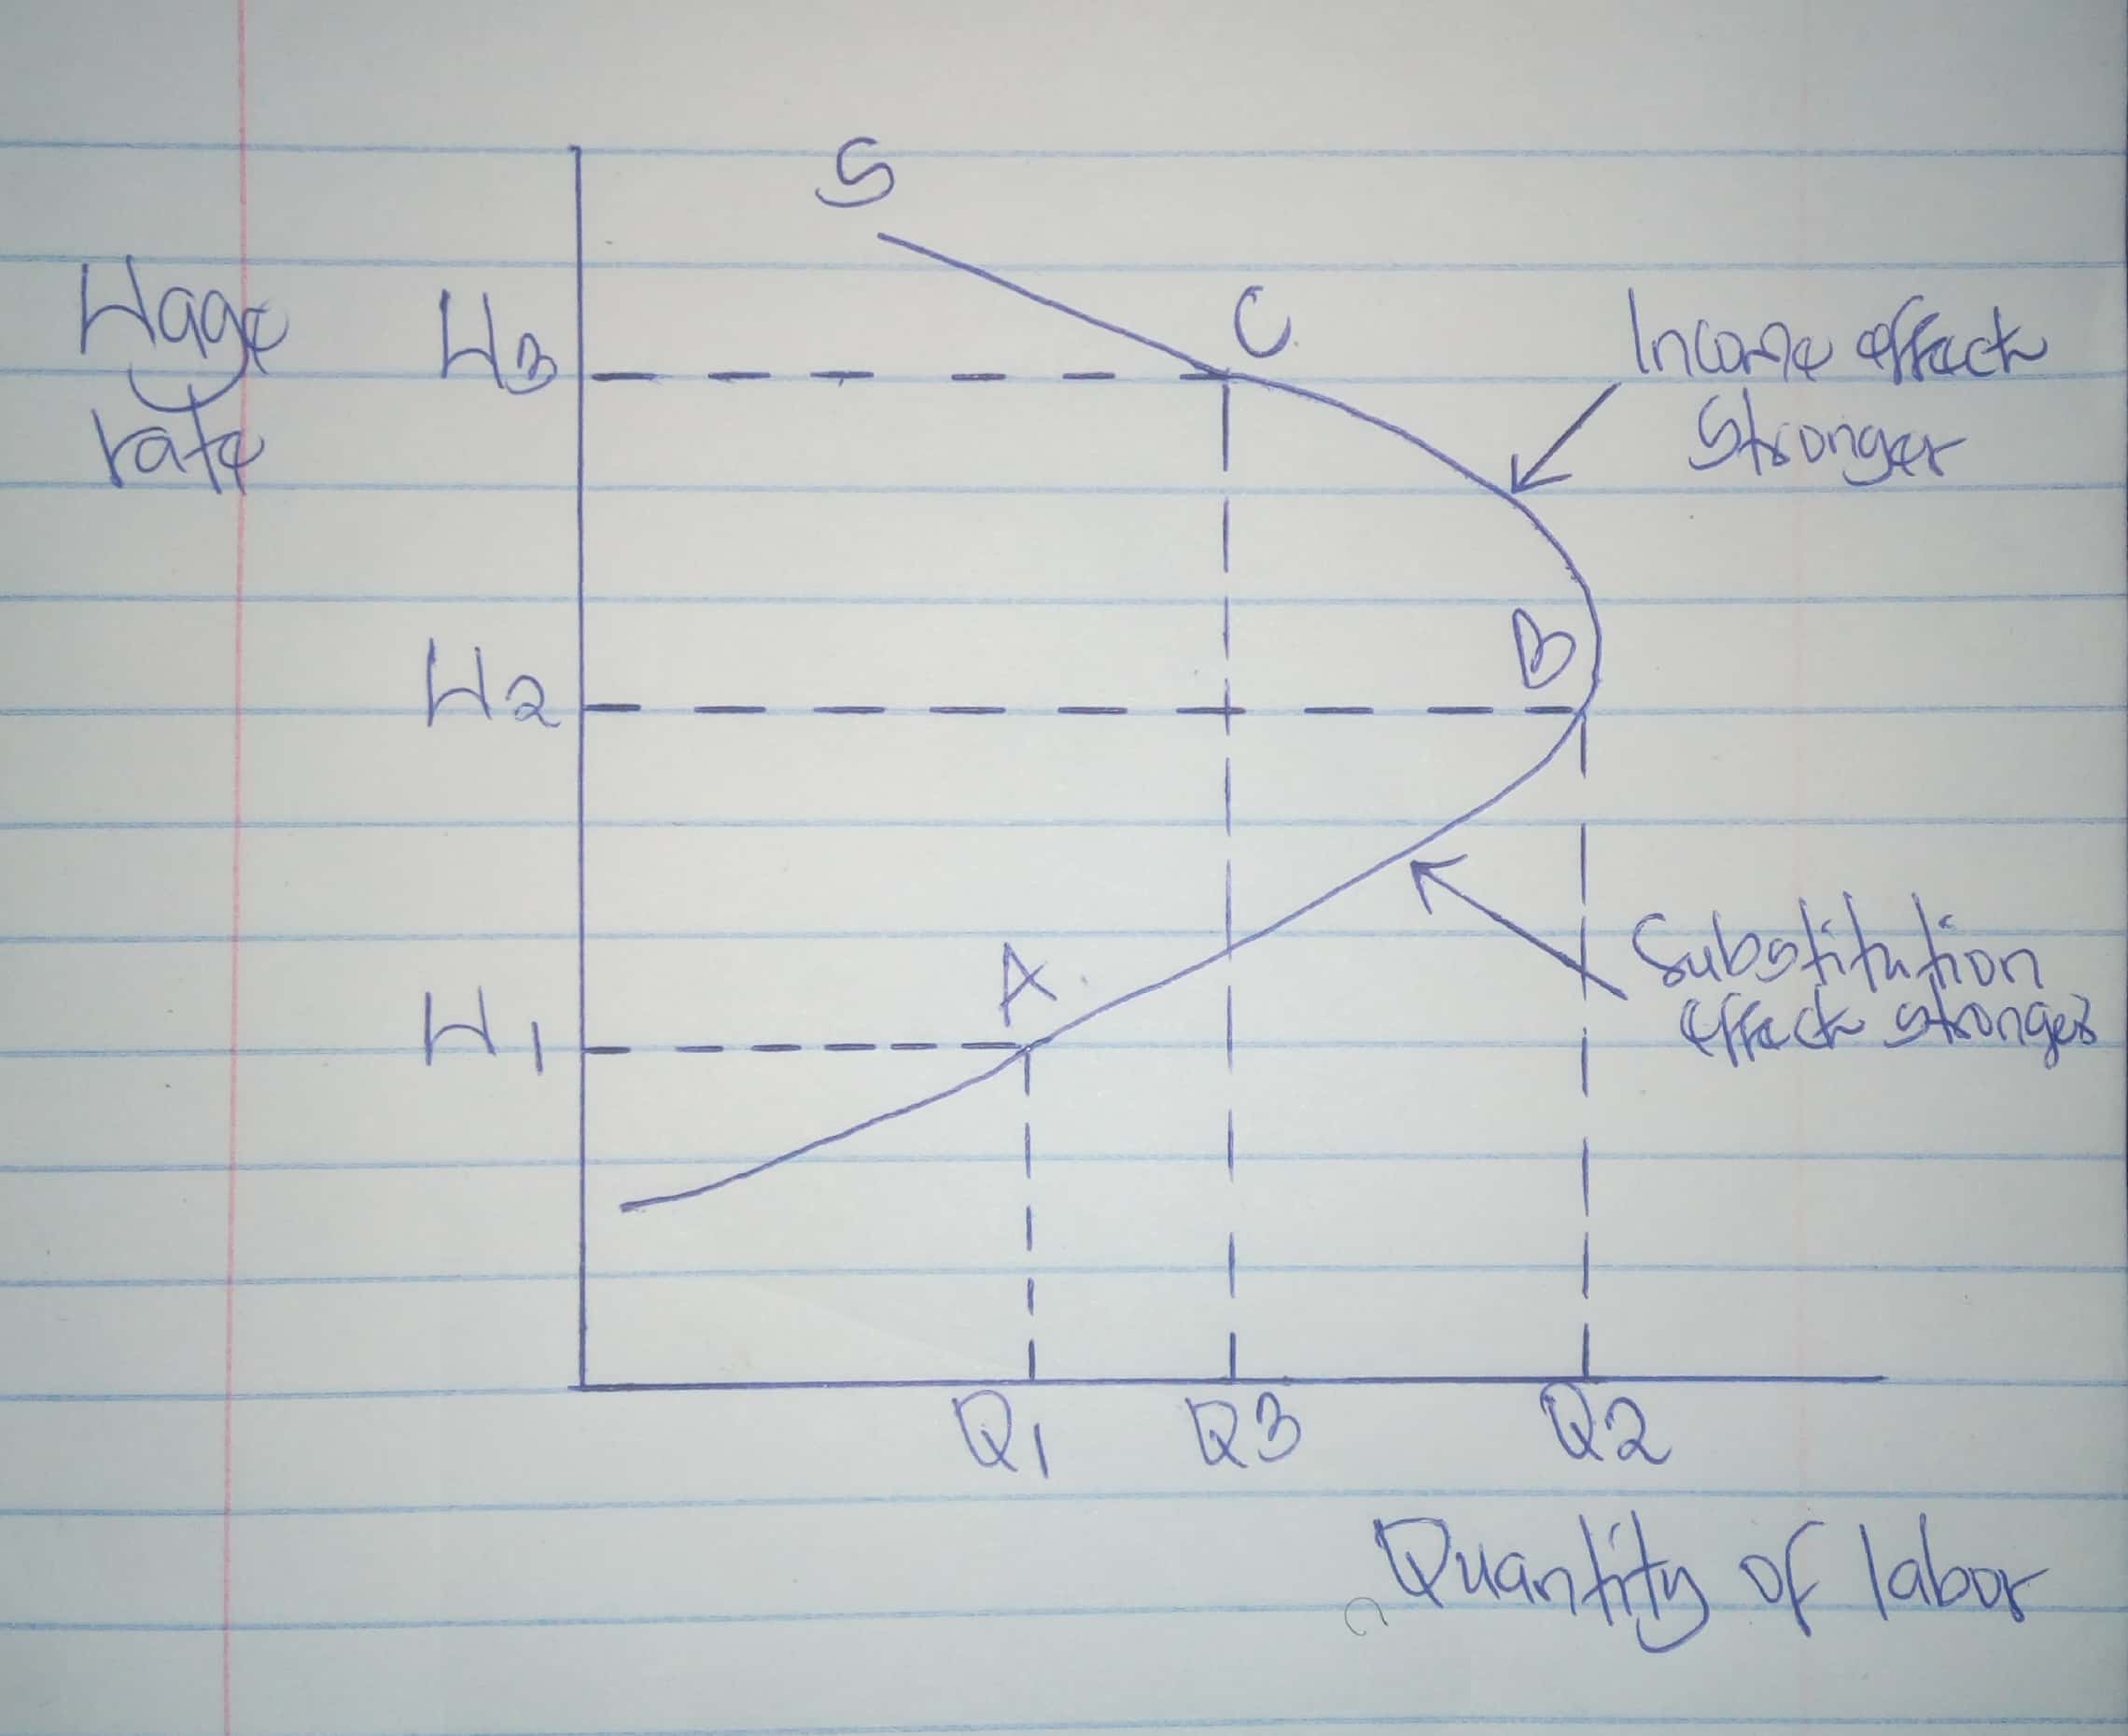 S
Wage
rate
W3
C
Income effect
stronger
W2
B
A
W1
Substitution
effect stronger
Q1
Q3
Q2
Quantity of labor